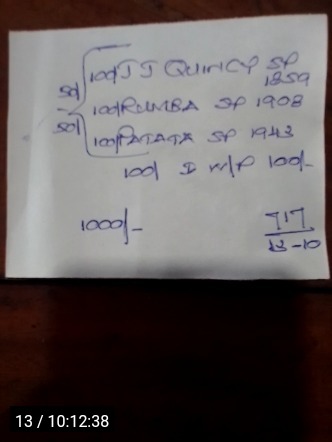 50/-50/
100/ J J QUINCY SP 1859
100/ RUMBA SP 1908
100/ PATATA SP 1943
100/ D W/P 100/-
1000/-
717
13-10
13 / 10:12:38